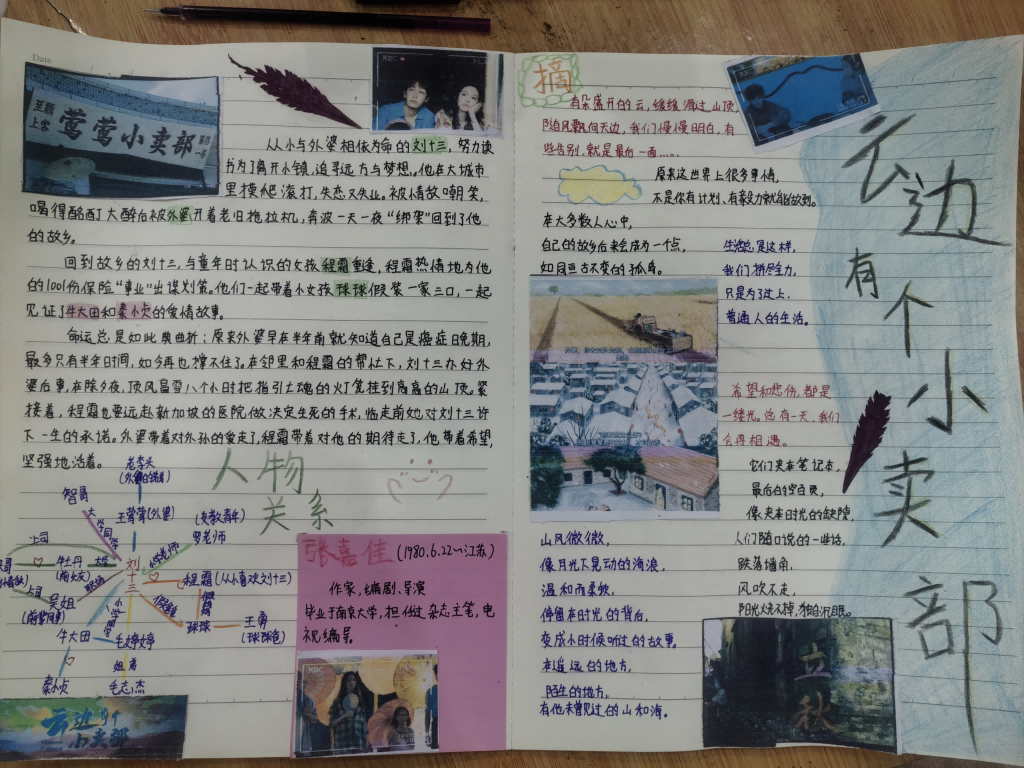 Date
至尊
上宾
莺莺小卖部
REC
从小与外婆相依为命的刘十三，努力读
书为了离开小镇，追寻远方与梦想。他在大城市
里摸爬滚打，失恋又失业。被情敌嘲笑，
喝得酩酊大醉后被外婆开着老旧拖拉机，奔波一天一夜“绑架”回到了他
的故乡。
回到故乡的刘十三，与童年时认识的女孩程霜重逢，程霜热情地为他
的1001份保险“事业”出谋划策。他们一起带着小女孩球球假装一家三口，一起
见证了牛大田和秦小贞的爱情故事。
命运总是如此曲折：原来外婆早在半年前就知道自己是癌症日晚期，
最多只有半年时间，如今再也撑不住了。在邻里和程霜的帮忙下，刘十三办好外
婆后事，在除夕夜，顶风冒雪八个小时把指引亡魂的灯笼挂到高高的山顶。紧
接着，程霜也要远赴新加坡的医院做决定生死的手术，临走前她对刘十三许
下一生的承诺。外婆带着对外孙的爱走了，程霜带着对他的期待走了，他带着希望，
坚强地活着。
人物
关系
智哥
王莺莺(外婆)
(支教青年)
罗老师
大学同学
小学老师
上司
牡丹
(前女友)
刘十三
程霜(从小喜欢刘十三)
上司
职场
吴姐
假扮
假冒
球球
王勇
(球球爸)
牛大田
毛婷婷
姐弟
秦小贞
毛志杰
云边有个
小卖部
张嘉佳(1980.6.22~江苏)
作家，编剧、导演
毕业于南京大学，担任过杂志主笔，电
视编导。
REC
摘
有朵盛开的云，缓缓滑过山顶，
随风飘向天边，我们慢慢明白，有
些告别，就是最后一面……
原来这世界上很多事情，
不是你有计划、有毅力就能做到。
在大多数人心中，
自己的故乡后来会成为一个点，
如同亘古不变的孤岛。
生活总是这样，
我们拼尽全力，
只是为了过上，
普通人的生活。
希望和悲伤，都是
一缕光。总有一天，我们
会再相遇。
它们夹在笔记本，
最后的空白页，
像夹在时光的缝隙，
人们随口说的一些话，
跌落墙角，
风吹不走，
阳光烧不掉，独自沉眠。
山风微微，
像月光下晃动的海浪，
温和而柔软，
停留在时光的背后，
变成小时候听过的故事。
在遥远的地方，
陌生的地方，
有他未曾见过的山和海。
立
秋
云边
有
个
小
卖
部